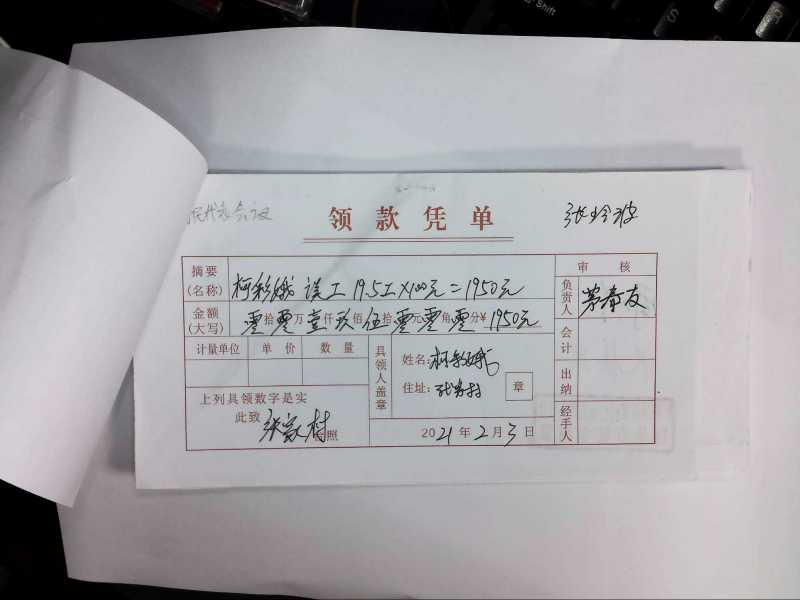 Shift
民代表会议
领款凭单
张玲波
摘要
(名称)
柯彩娥 误工 19.5工×100元=1950元
金额
(大写)
零拾零万壹仟玖佰伍拾零元零角零分¥1950元
计量单位 单价 数量
具领人盖章
姓名:柯彩娥
住址:张家村
章
上列具领数字是实
此致
张家村 台照
2021年2月3日
审核
负责人
茅春友
会计
出纳
经手人